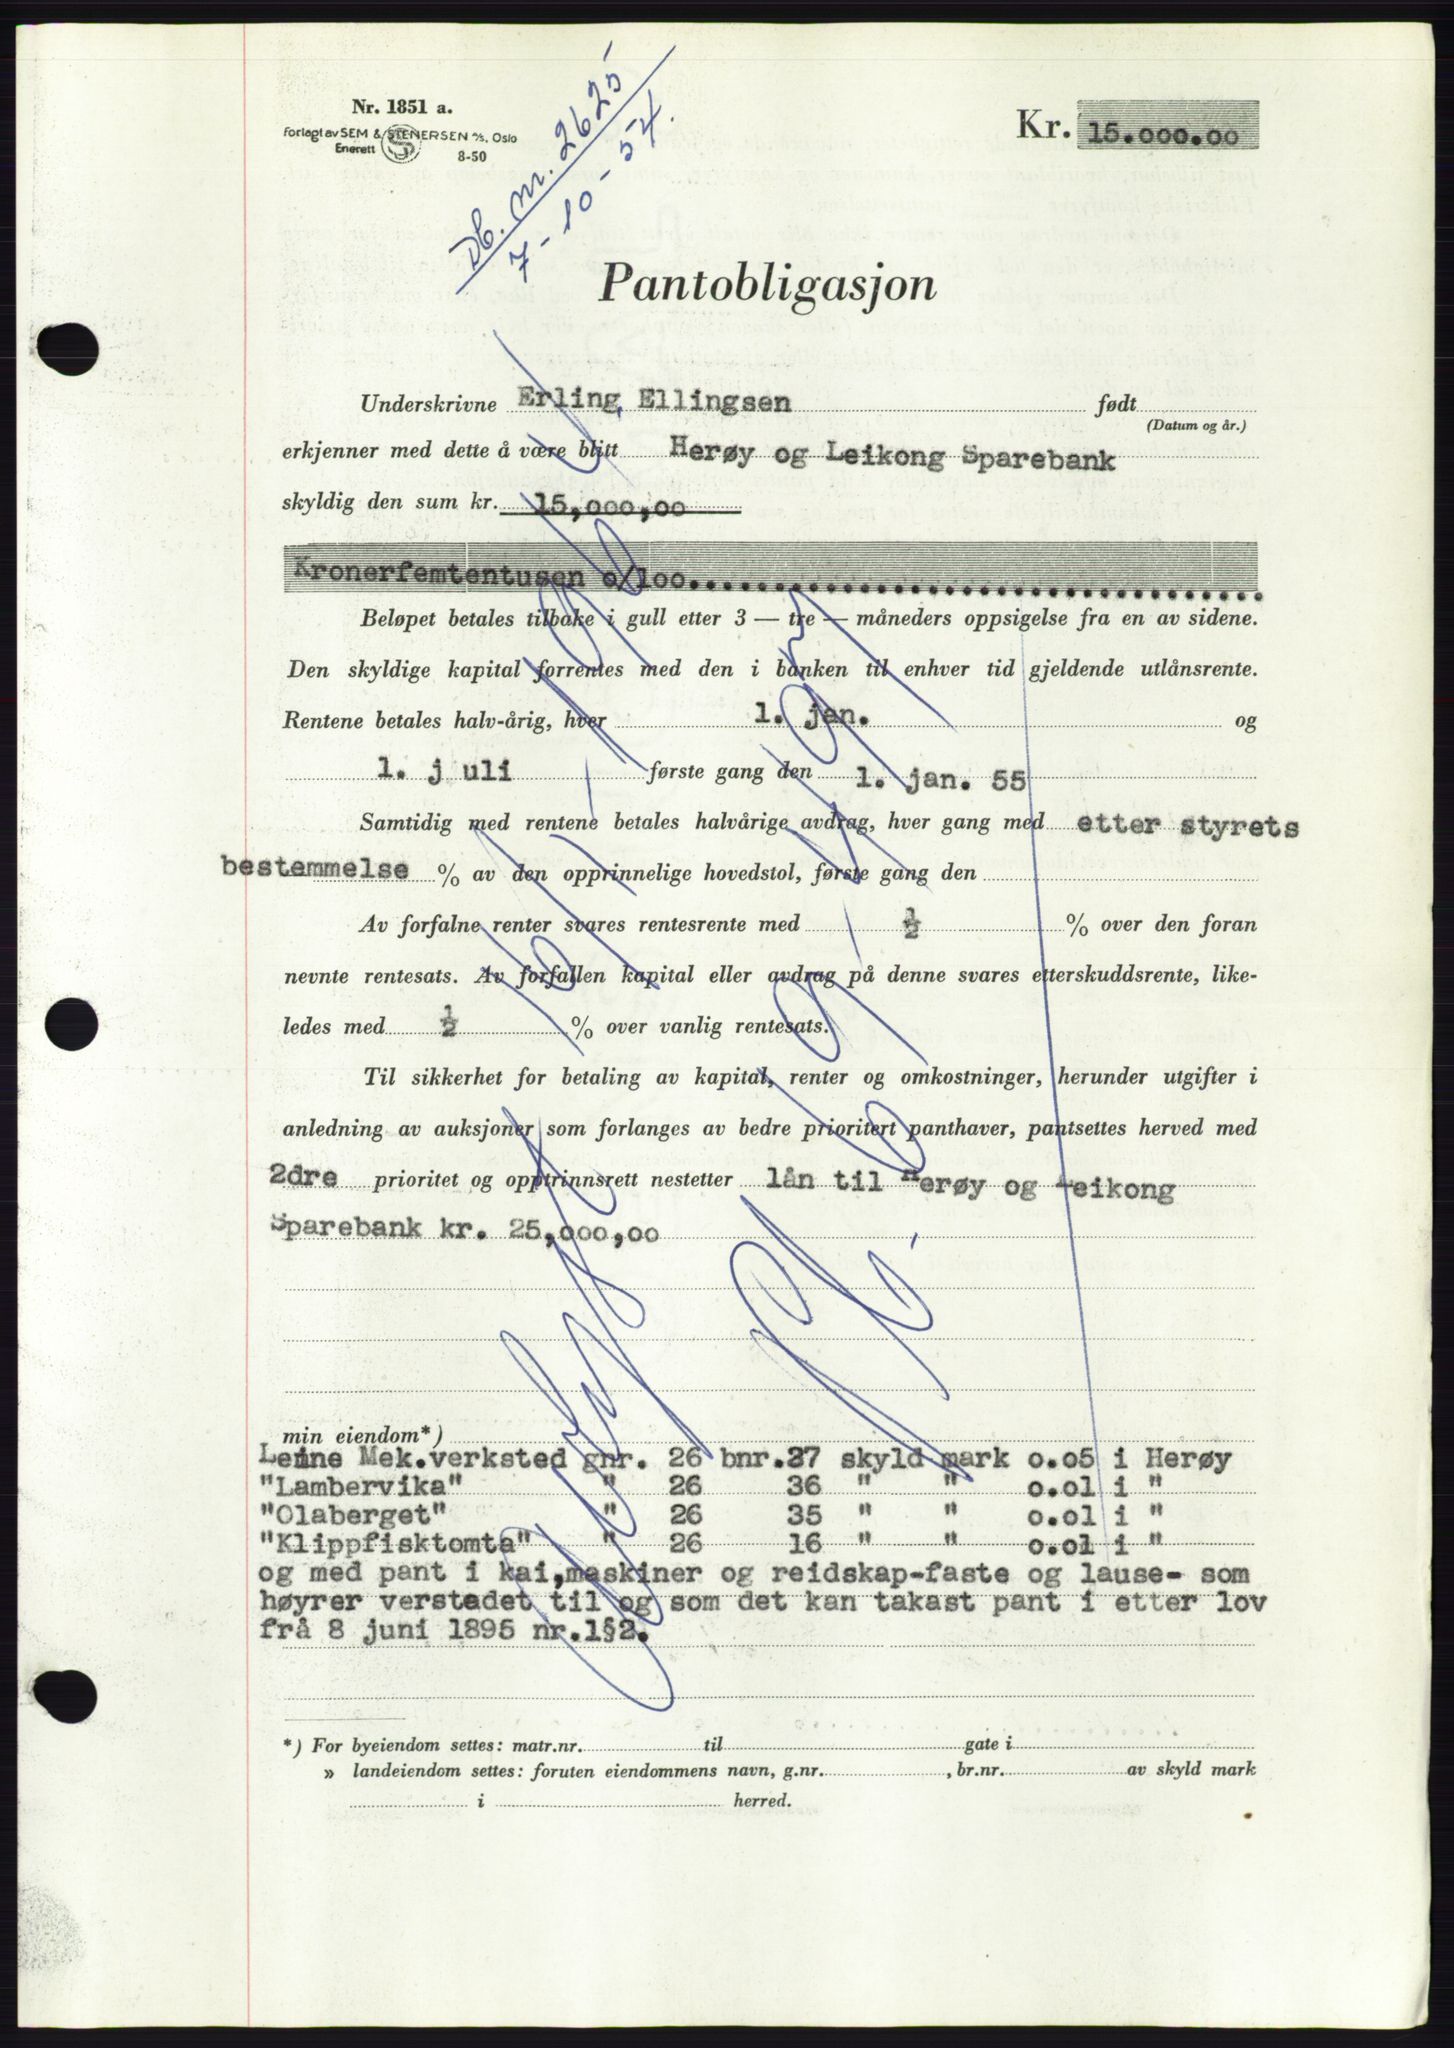 Nr. 1851 a.
Forlagt av SEM & STENERSEN A/S, Oslo
Enerett
8-50
Db. nr. 2625
7-10-54.
Kr. 15.000.00
Pantobligasjon
Underskrivne Erling Ellingsen født
(Datum og år.)
erkjenner med dette å være blitt Herøy og Leikong Sparebank
skyldig den sum kr. 15,000,00
Kronerfemtentusen o/loo
Beløpet betales tilbake i gull etter 3 — tre — måneders oppsigelse fra en av sidene.
Den skyldige kapital forrentes med den i banken til enhver tid gjeldende utlånsrente.
Rentene betales halv-årig, hver 1. jan. og
1. j uli første gang den 1. jan. 55
Samtidig med rentene betales halvårige avdrag, hver gang med etter styrets
bestemmelse % av den opprinnelige hovedstol, første gang den
Av forfalne renter svares rentesrente med ½ % over den foran
nevnte rentesats. Av forfallen kapital eller avdrag på denne svares etterskuddsrente, like-
ledes med ½ % over vanlig rentesats.
Til sikkerhet for betaling av kapital, renter og omkostninger, herunder utgifter i
anledning av auksjoner som forlanges av bedre prioritert panthaver, pantsettes herved med
2dre prioritet og opptrinnsrett nestetter lån til Herøy og Leikong
Sparebank kr. 25,000,00
min eiendom*)
Leine Mek.verksted gnr. 26 bnr.37 skyld mark o.o5 i Herøy
"Lambervika" " 26 36 " " o.ol i "
"Olaberget" " 26 35 " " o.ol i "
"Klippfisktomta" " 26 16 " " o.ol i "
og med pant i kai,maskiner og reidskap-faste og lause- som
høyrer verstedet til og som det kan takast pant i etter lov
frå 8 juni 1895 nr.1§2.
*) For byeiendom settes: matr.nr. til gate i
» landeiendom settes: foruten eiendommens navn, g.nr. , br.nr. av skyld mark
i herred.